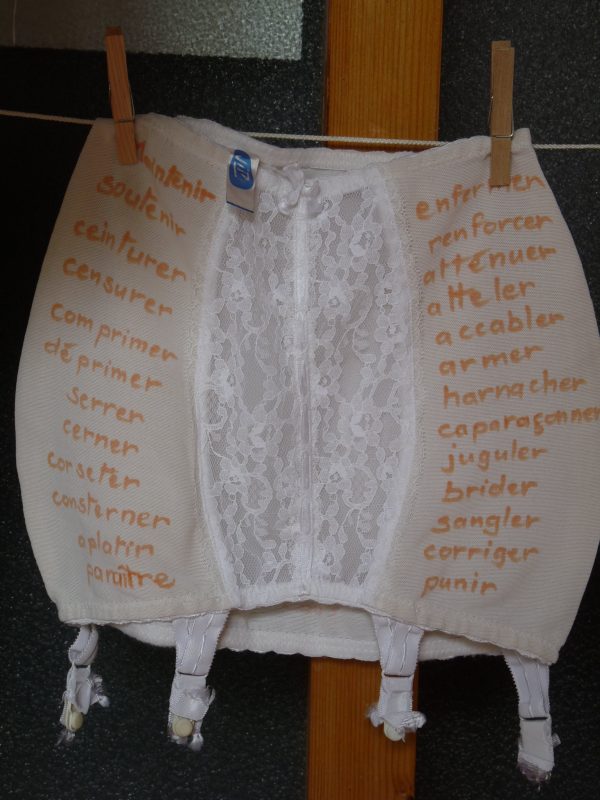 Maintenir
soutenir
ceinturer
censurer
comprimer
déprimer
serrer
cerner
corseter
consterner
aplatir
paraître
enfermer
renforcer
atténuer
atteler
accabler
armer
harnacher
caparaçonner
juguler
brider
sangler
corriger
punir